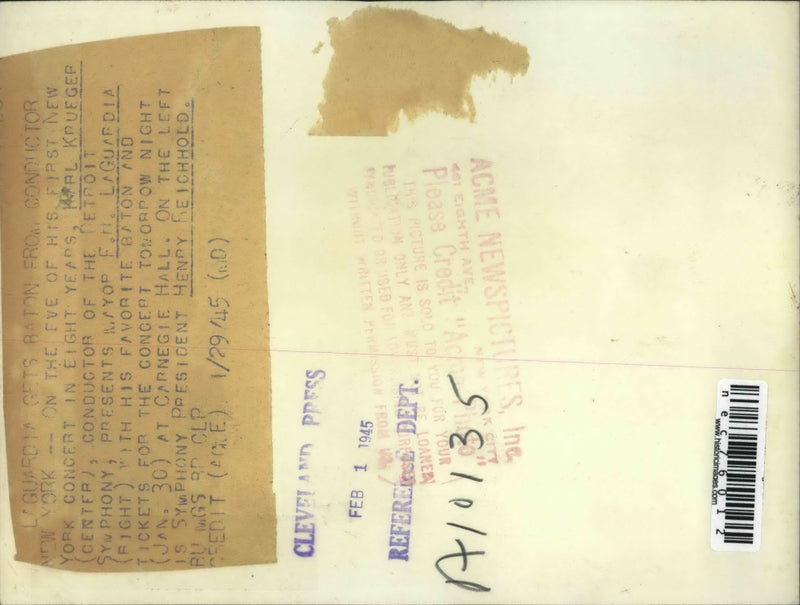 LAGUARDIA GETS BATON FROM CONDUCTOR
NEW YORK -- ON THE EVE OF HIS FIRST NEW
YORK CONCERT IN EIGHT YEARS, KARL KRUEGER
(CENTER), CONDUCTOR OF THE DETROIT
SYMPHONY, PRESENTS MAYOR F.H. LAGUARDIA
(RIGHT) WITH HIS FAVORITE BATON AND
TICKETS FOR THE CONCERT TOMORROW NIGHT
(JAN. 30) AT CARNEGIE HALL. ON THE LEFT
IS SYMPHONY PRESIDENT HENRY REICHHOLD.
BU MGS RP CLP
CREDIT (ACME) 1/29/45 (MD)
CLEVELAND PRESS
FEB 1 1945
REFERENCE DEPT.
ACME NEWSPICTURES, Inc.
461 EIGHTH AVE., NEW YORK CITY
Please Credit "ACME PHOTO"
THIS PICTURE IS SOLD TO YOU FOR YOUR
PUBLICATION ONLY AND MUST BE LOANED,
SYNDICATED OR USED FOR
WITHOUT WRITTEN PERMISSION FROM
A10135
nec76012
www.historicimages.com